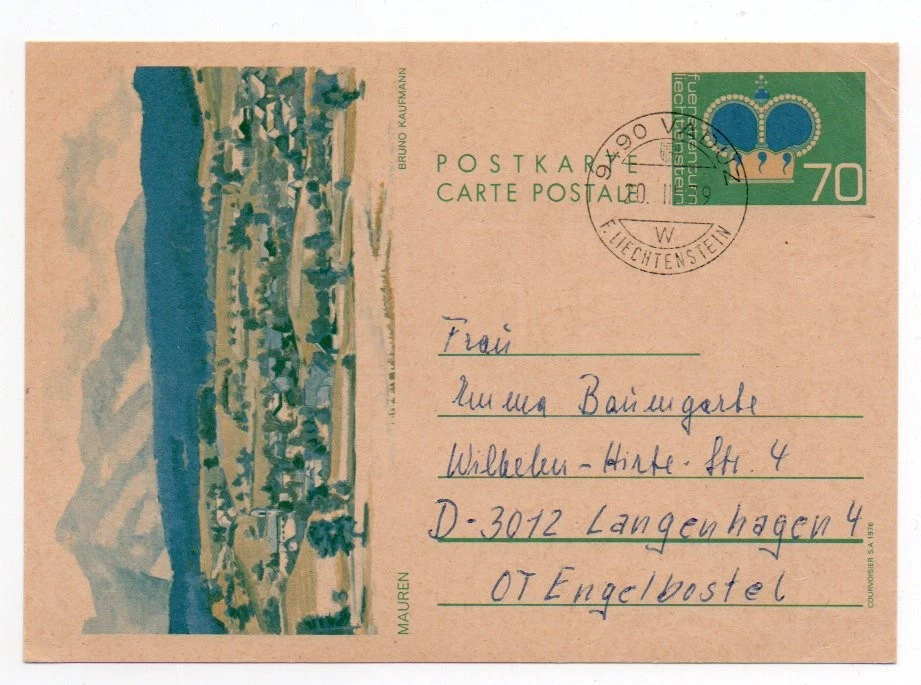 BRUNO KAUFMANN
MAUREN
POSTKARTE
CARTE POSTALE
fuerstentum
liechtenstein
70
9490 VADUZ
20. II. 79
W
F. LIECHTENSTEIN
Frau
Emma Baumgarte
Wilhelm-Hirte-Str. 4
D-3012 Langenhagen 4
OT Engelbostel
COURVOISIER S.A. 1976